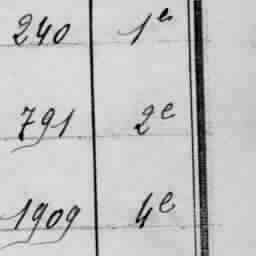 240 1es
791 2e
1909 4e